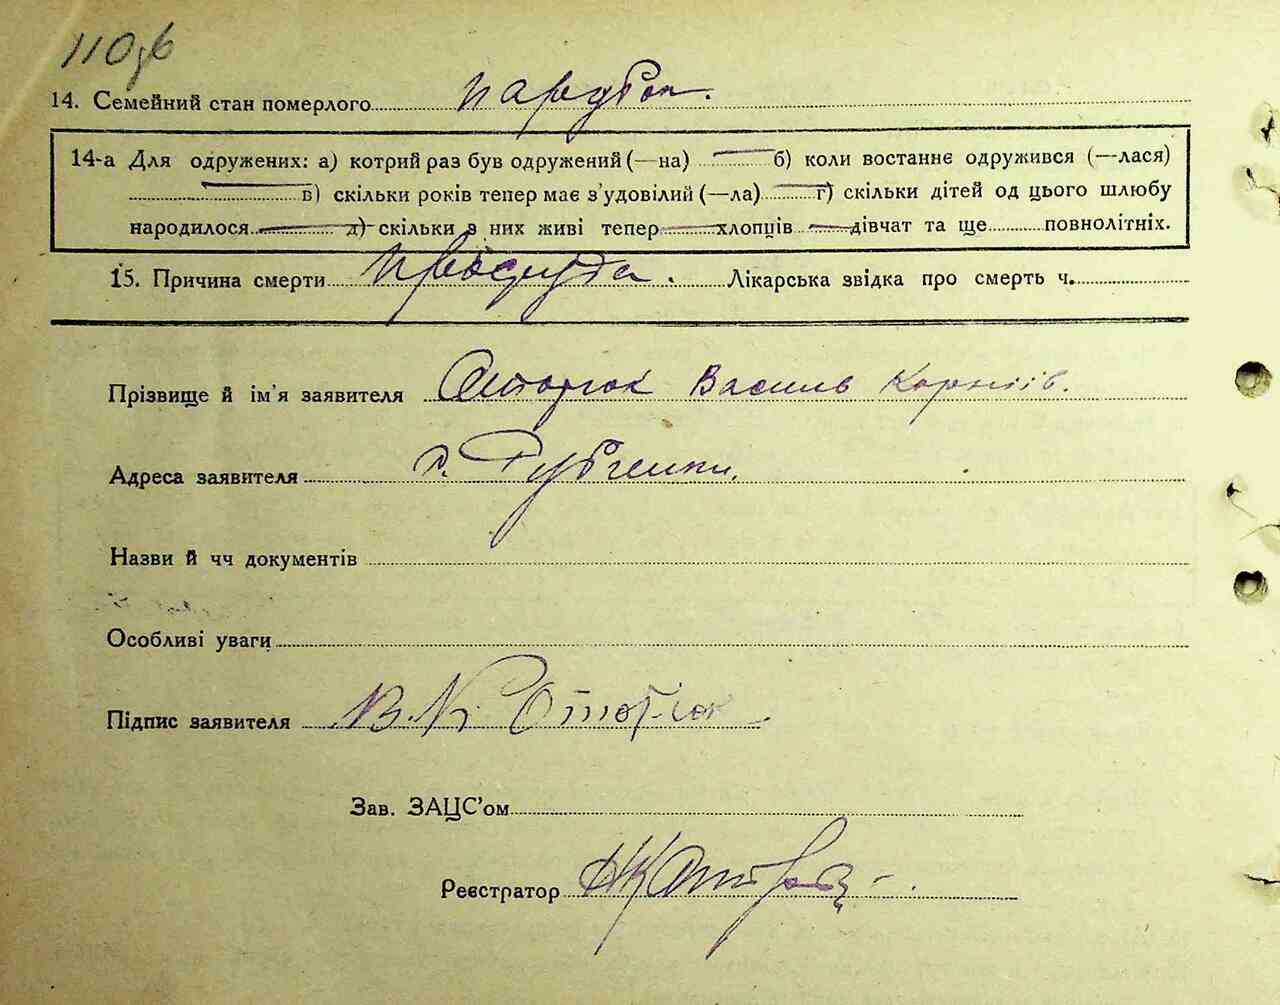 110зв
14. Семейний стан померлого парубок.
14-а Для одружених: а) котрий раз був одружений (—на) — б) коли востаннє одружився (—лася)
— в) скільки років тепер має з'удовілий (—ла) — г) скільки дітей од цього шлюбу
народилося — д) скільки з них живі тепер — хлопців — дівчат та ще повнолітніх.
15. Причина смерти простуда. Лікарська звідка про смерть ч.
Прізвище й ім'я заявителя Василь Корніїв.
Адреса заявителя с. Рубченки.
Назви й чч документів
Особливі уваги
Підпис заявителя В. К.
Зав. ЗАЦС'ом
Реєстратор